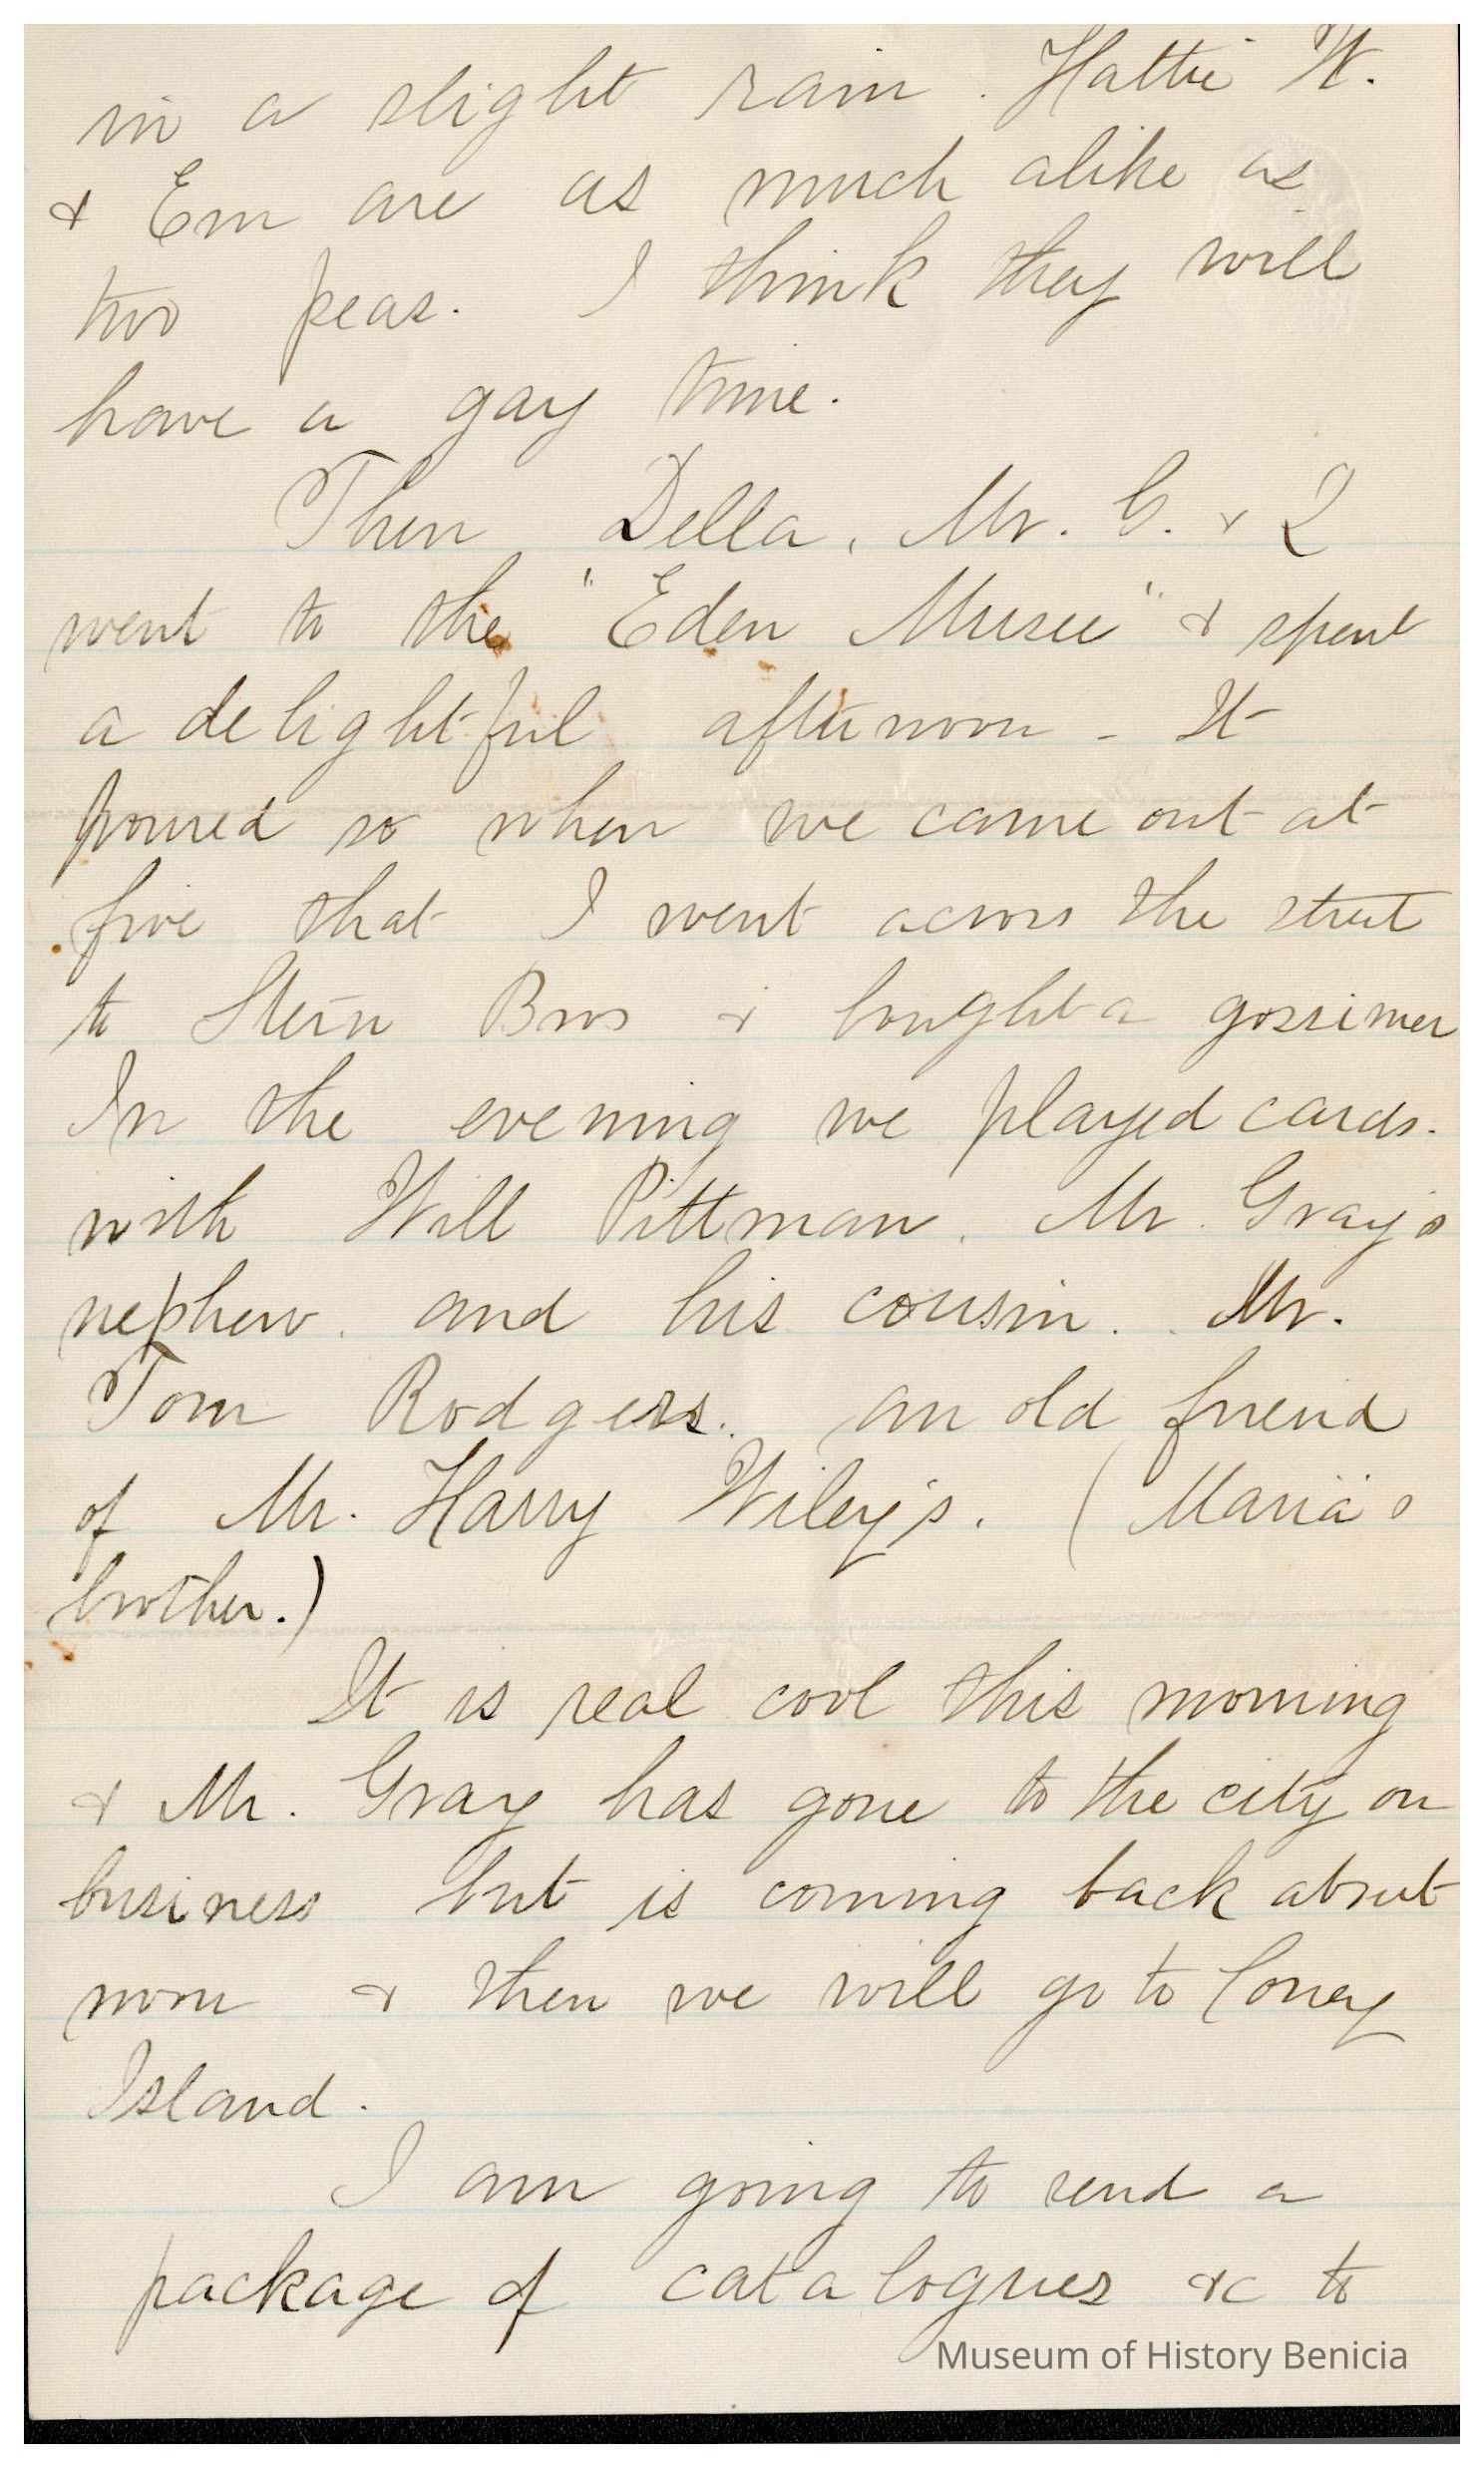 in a slight rain. Hattie W.
& Em are as much alike as
two peas. I think they will
have a gay time.
Then Della, Mr. G. & I
went to the "Eden Musee" & spent
a delightful afternoon - It
poured so when we came out at
five that I went across the street
to Stern Bros & bought a gossimer
In the evening we played cards.
with Will Pittman, Mr. Gray's
nephew. and his cousin. Mr.
Tom Rodgers. an old friend
of Mr. Harry Wiley's. (Maria's
brother.)
It is real cool this morning
& Mr. Gray has gone to the city on
business but is coming back about
noon & then we will go to Coney
Island.
I am going to send a
package of catalogues &c to
Museum of History Benicia